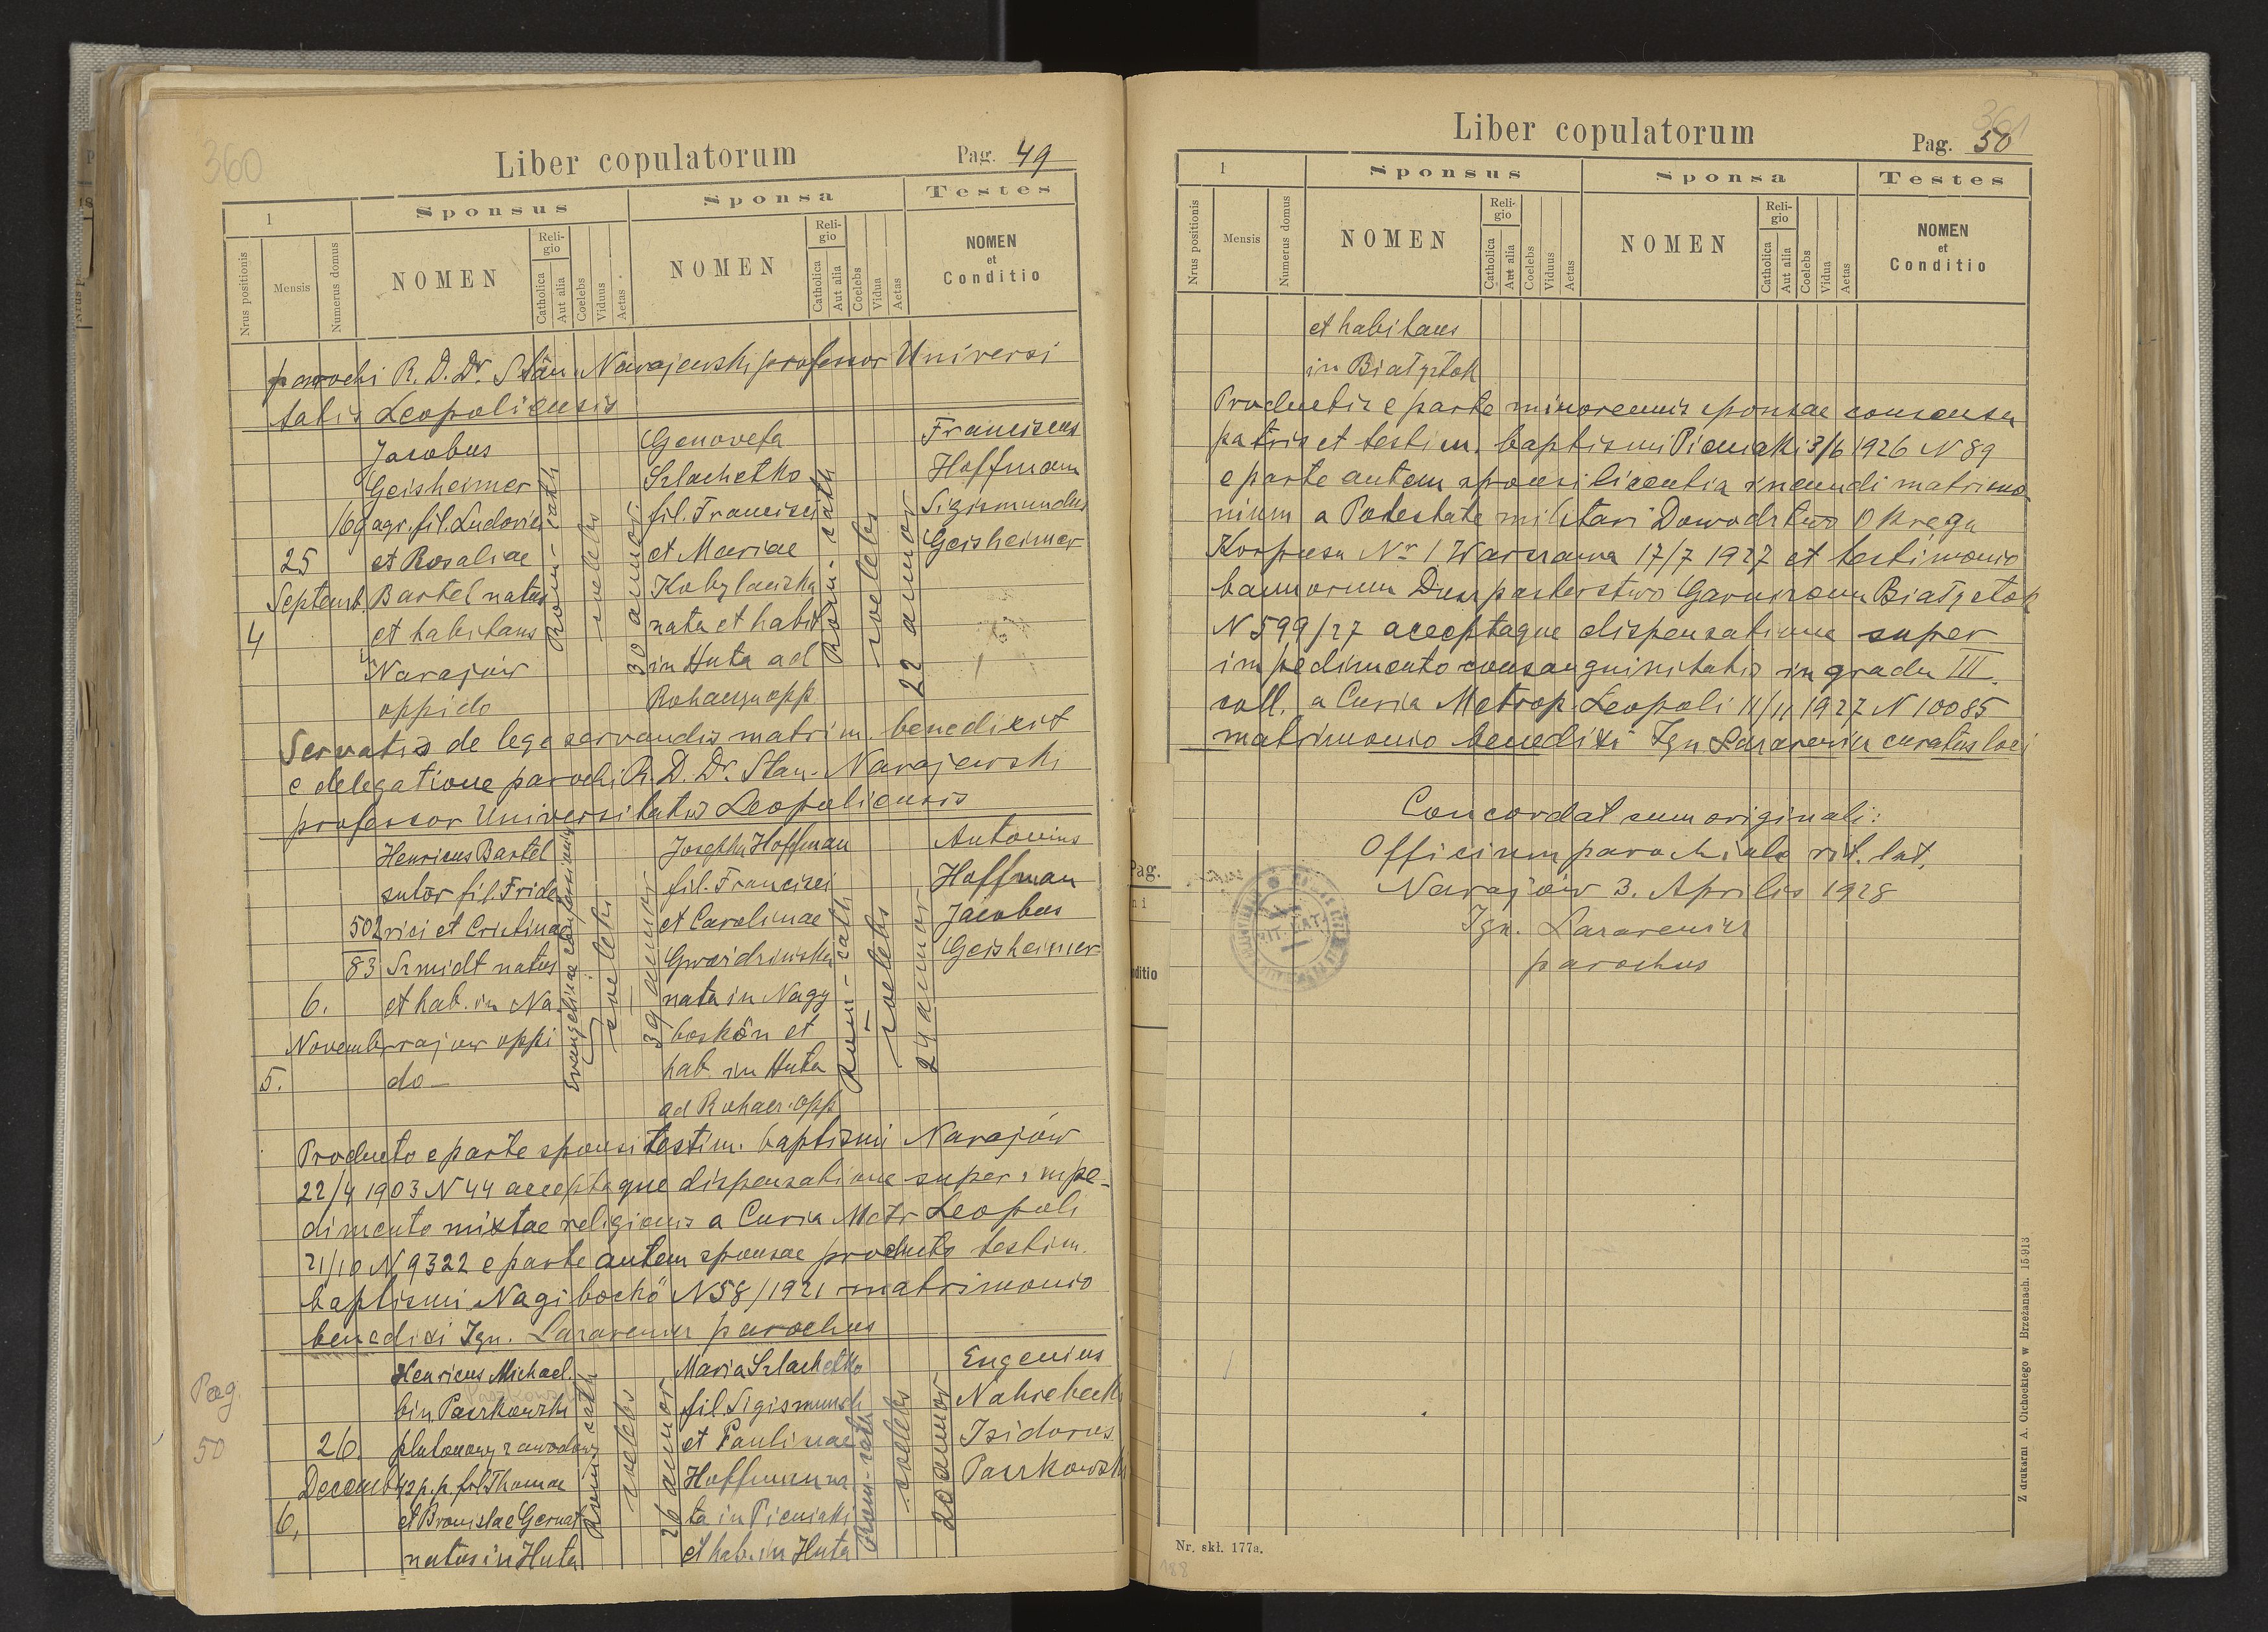 360
Liber copulatorum
Pag. 49
1
Sponsus
Sponsa
Testes
Nrus positionis
Mensis
Numerus domus
NOMEN
Religio
Catholica
Aut alia
Coelebs
Viduus
Aetas
NOMEN
Religio
Catholica
Aut alia
Coelebs
Vidua
Aetas
NOMEN
et
Conditio
parochi R. D. Dr. Stan. Narajewski professor Universi
tatis Leopoliensis
4
25
Septemb.
169
Jacobus
Geisheimer
agr. fil. Ludovici
et Rosaliae
Bartel natus
et habitans
in Narajów
oppido
Rom-cath
coelebs
30 annor.
Genovefa
Szlachetko
fil. Francisci
et Mariae
Kobylanska
nata et habit
in Huta ad
Rohaczyn opp.
Rom-cath
coelebs
22 annor
Franciscus
Hoffmann
Sigismundus
Geisheimer
Servatis de lege servandis matrim. benedixit
e delegatione parochi R. D. Dr. Stan. Narajewski
professor Universitatis Leopoliensis
5.
6.
Novemb
502
83
Henricus Bartel
sutor fil. Fride
rici et Cristinae
Szmidt natus
et hab. in Na
rajow oppi
do
Evangelinae confessionis
coelebs
39 annor
Josepha Hoffman
fil. Francisci
et Carolinae
Gwozdzinska
nata in Nagy
boskön et
hab. in Huta
ad Rohacz. opp
Rom-cath
coelebs
24 annor
Antonius
Hoffman
Jacobus
Geisheimer
Producto e parte sponsi testim. baptismi Narajów
22/4 1903 N 44 acceptaque dispensatione super impe-
dimento mixtae religionis a Curia Metr Leopoli
21/10 N 9322 e parte autem sponsae producto testim.
baptismi Nagi bockö N58/1921 matrimonio
benedixi Ign. Lazarewicz parochus
Pag.
50
6.
26.
Decemb
Henricus Michael.
bin Paszkowski
plutonowy zawodowy
42 p.p. fil. Thomae
et Bronislae Gernat
natus in Huta
Rom cath
coelebs
26 annor
Maria Szlachetko
fil Sigismundi
et Paulinae
Hoffmann na
ta in Pieniaki
et hab. in Huta
Rom-cath
coelebs
20 annor
Eugenius
Isidorus
Paszkowski
361
Liber copulatorum
Pag. 50
1
Sponsus
Sponsa
Testes
Nrus positionis
Mensis
Numerus domus
NOMEN
Religio
Catholica
Aut alia
Coelebs
Viduus
Aetas
NOMEN
Religio
Catholica
Aut alia
Coelebs
Vidua
Aetas
NOMEN
et
Conditio
et habitans
in Białystok
Productis e parte minorennis sponsae consensu
patris et testim. baptismi Pieniaki 3/6 1926 N 89
e parte autem sponsi licentia ineundi matrimo-
nium a Potestate militari Dowództwo Okręgu
Korpusu Nr 1 Warszawa 17/7 1927 et testimonio
bannorum Duszpasterstwo Garnizonu Białystok
N 599/27 acceptaque dispensatione super
impedimento consanguinitatis in gradu III.
coll. a Curia Metrop. Leopoli 11/11 1927 N 10085
matrimonio benedixi Ign Lazarewicz curatus loci
Concordat cum originali:
Officium parochiale rit. lat.
Narajów 3. Aprilis 1928
Ign. Lazarewicz
parochus
Pag.
Z drukarni A. Cichockiego w Brzeżanach. 159-13
Nr. skł. 177a.
188